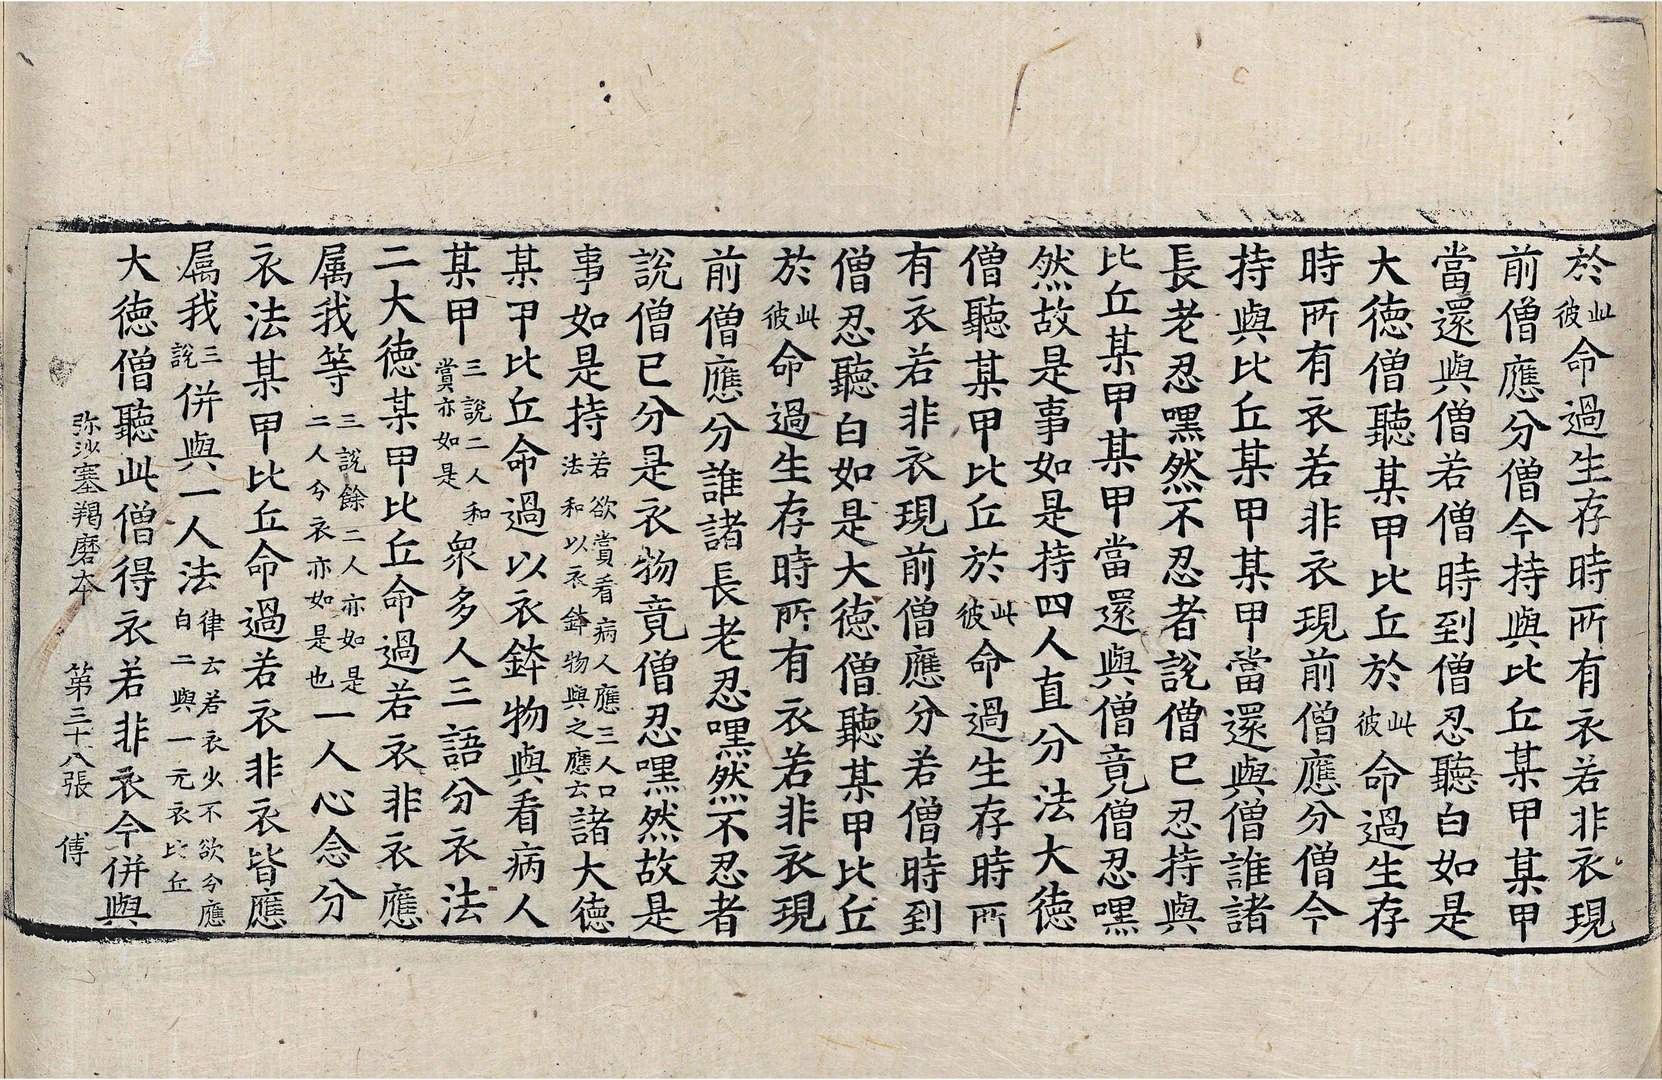 於此彼命過生存時所有衣若非衣現
前僧應分僧今持與比丘某甲某甲
當還與僧若僧時到僧忍聽白如是
大徳僧聽某甲比丘於此彼命過生存
時所有衣若非衣現前僧應分僧今
持與比丘某甲某甲當還與僧誰諸
長老忍嘿然不忍者說僧已忍持與
比丘某甲某甲當還與僧竟僧忍嘿
然故是事如是持四人直分法大徳
僧聽某甲比丘於此彼命過生存時所
有衣若非衣現前僧應分若僧時到
僧忍聽白如是大徳僧聽某甲比丘
於此彼命過生存時所有衣若非衣現
前僧應分誰諸長老忍嘿然不忍者
說僧已分是衣物竟僧忍嘿然故是
事如是持若欲賞看病人應三人口法和以衣鉢物與之應云諸大徳
某甲比丘命過以衣鉢物與看病人
某甲三說二人和賞亦如是衆多人三語分衣法
二大徳某甲比丘命過若衣非衣應
属我等三說餘二人亦如是二人分衣亦如是也一人心念分
衣法某甲比丘命過若衣非衣皆應
属我三說併與一人法律云若衣少不欲分應白二與一无衣比丘
大徳僧聽此僧得衣若非衣今併與
弥沙塞羯磨本 第三十八張 傅